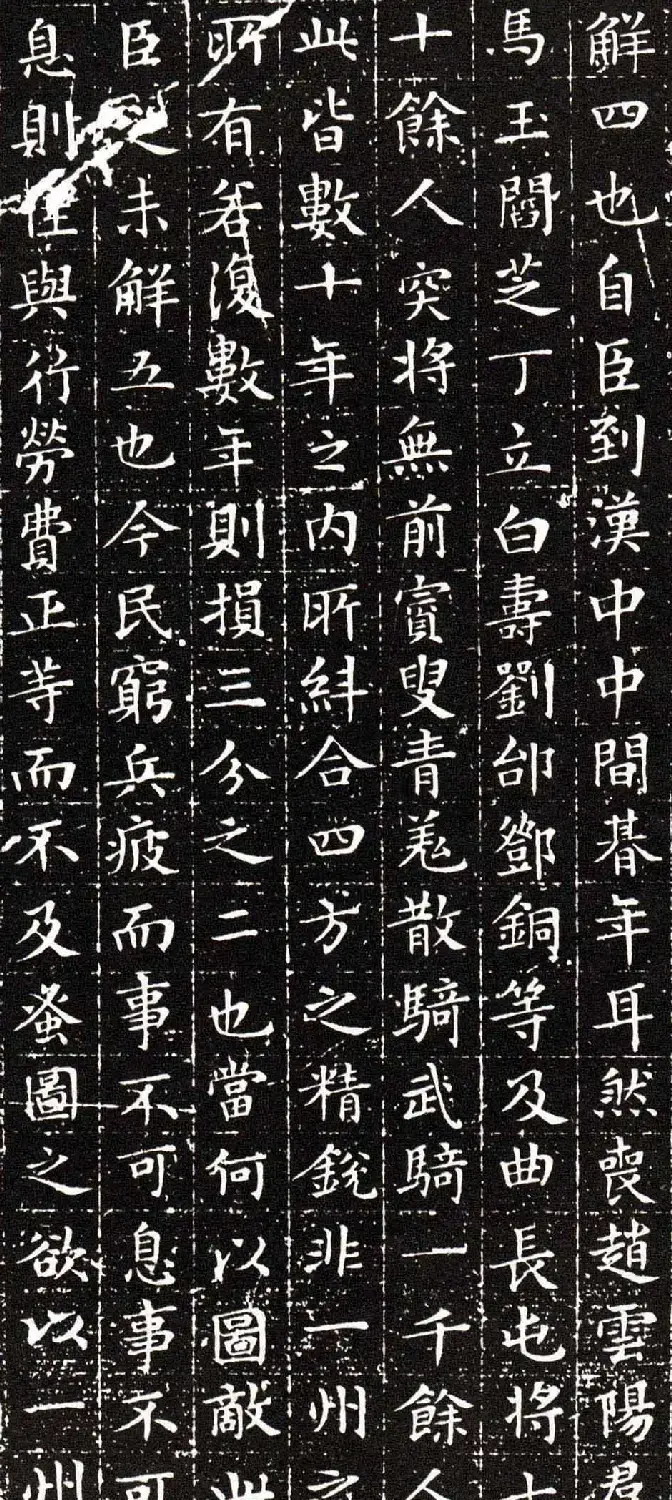 觧四也自臣到漢中中間朞年耳然喪趙雲陽君
馬玉閻芝丁立白壽劉郃鄧銅等及曲長屯將
十餘人突將無前賨叟青羌散騎武騎一千餘人
此皆數十年之内所糾合四方之精鋭非一州之
所有若復數年則損三分之二也當何以圖敵此
臣之未觧五也今民窮兵疲而事不可息事不可
息則住與行勞費正等而不及蚤圖之欲以一州